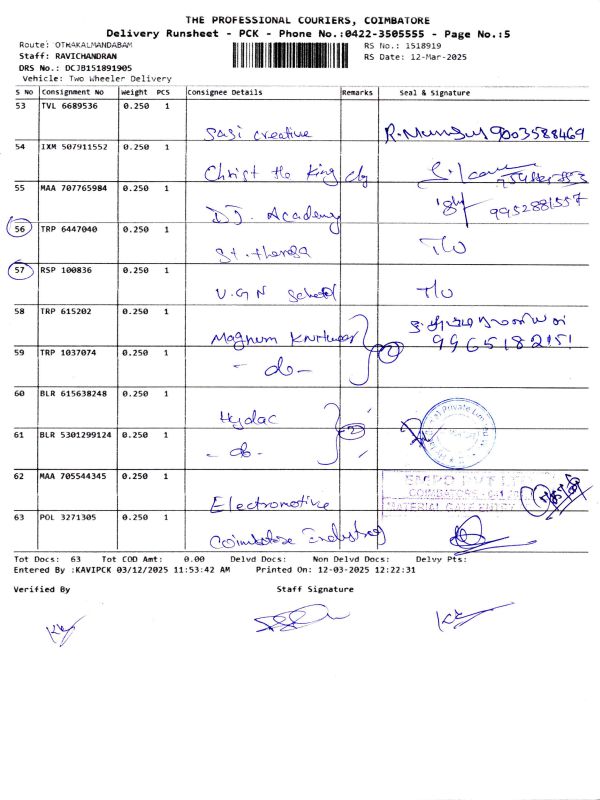 THE PROFESSIONAL COURIERS, COIMBATORE
Delivery Runsheet - PCK - Phone No.:0422-3505555 - Page No.:5
Route: OTHAKALMANDABAM
RS No.: 1518919
Staff: RAVICHANDRAN
RS Date: 12-Mar-2025
DRS No.: DCJB151891905
Vehicle: Two Wheeler Delivery
S NO Consignment No Weight PCS Consignee Details Remarks Seal & Signature
53 TVL 6689536 0.250 1
Sasi Creative 9003588469
54 IXM 507911552 0.250 1
Christ the King
55 MAA 707765984 0.250 1
DJ. Academy 9952881557
56 TRP 6447040 0.250 1
St. theresa T/U
57 RSP 100836 0.250 1
V.G.N School T/U
58 TRP 615202 0.250 1
Magnum 9965182151
59 TRP 1037074 0.250 1
- do - 2
60 BLR 615638248 0.250 1
Hydac
61 BLR 5301299124 0.250 1
- do - 2
62 MAA 705544345 0.250 1
COIMBATORE
Electromotive MATERIAL GATE ENTRY
63 POL 3271305 0.250 1
Coimbatore Industrey
Tot Docs: 63 Tot COD Amt: 0.00 Delvd Docs: Non Delvd Docs: Delvy Pts:
Entered By :KAVIPCK 03/12/2025 11:53:42 AM Printed On: 12-03-2025 12:22:31
Verified By Staff Signature